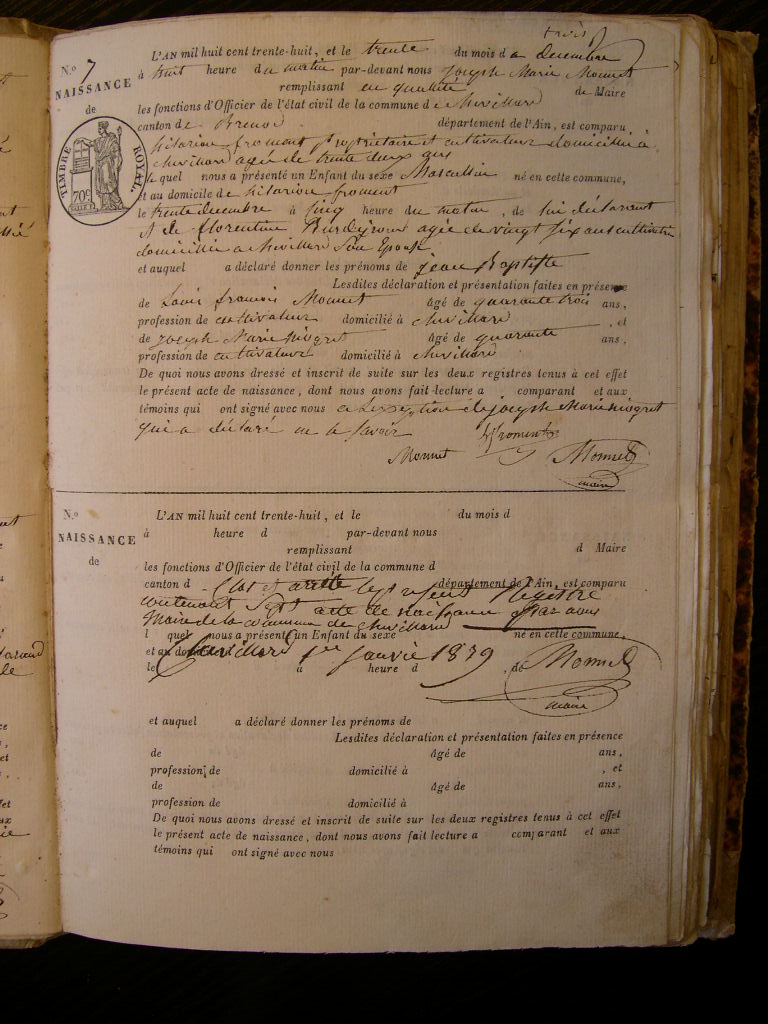 trois
N.o 7
NAISSANCE
de
TIMBRE ROYAL
70c
L'AN mil huit cent trente-huit, et le trente du mois d e decembre
à huit heure du matin par-devant nous joseph Marie Monnet
remplissant en qualité de Maire
les fonctions d'Officier de l'état civil de la commune d e chevillard
canton de Brenod département de l'Ain, est comparu,
hilarion froment propriétaire et cultivateur domicilié a
chevillard agé de trente deux ans
le quel nous a présenté un Enfant du sexe Masculin né en cette commune,
et au domicile de hilarion froment
le trente decembre à cinq heure du matin, de lui déclarant
et de florentine agée de vingt six ans cultivatrice
domicilié a chevillard Son Epouse
et auquel a déclaré donner les prénoms de jean Baptiste
Lesdites déclaration et présentation faites en présence
de Louis francois Monnet âgé de quarante trois ans,
profession de cultivateur domicilié à chevillard, et
de joseph Marie âgé de quarante ans,
profession de cultivateur domicilié à chevillard
De quoi nous avons dressé et inscrit de suite sur les deux registres tenus à cet effet
le présent acte de naissance, dont nous avons fait lecture a comparant et aux
témoins qui ont signé avec nous a de joseph Marie
qui a déclaré ne le savoir
froment
Monnet Monnet
maire
N.o
NAISSANCE
de
L'AN mil huit cent trente-huit, et le du mois d
à heure d par-devant nous
remplissant d Maire
les fonctions d'Officier de l'état civil de la commune d
canton d département de l'Ain, est comparu
Clos et arrêté le présent Registre
contenant Sept acte de naissance par nous
Maire de la commune de chevillard
l quel nous a présenté un Enfant du sexe né en cette commune,
et au domicile
Chevillard 1er janvié 1839 Monnet
le à heure d , de
maire
et auquel a déclaré donner les prénoms de
Lesdites déclaration et présentation faites en présence
de âgé de ans,
profession de domicilié à , et
de âgé de ans,
profession de domicilié à
De quoi nous avons dressé et inscrit de suite sur les deux registres tenus à cet effet
le présent acte de naissance, dont nous avons fait lecture a comparant et aux
témoins qui ont signé avec nous